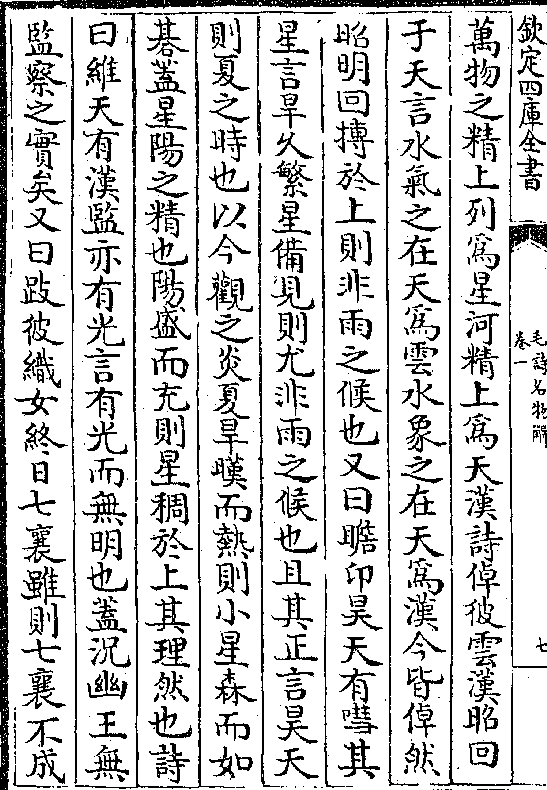 欽定四庫全書
毛詩名物解
卷一
七
萬物之精上列爲星河精上爲天漢詩倬彼雲漢昭回
于天言水氣之在天爲雲水象之在天爲漢今皆倬然
昭明回摶於上則非雨之候也又曰瞻卬昊天有嘒其
星言旱久繁星備見則尤非雨之候也且其正言昊天
則夏之時也以今觀之炎夏旱暵而熱則小星森而如
碁蓋星陽之精也陽盛而充則星稠於上其理然也詩
曰維天有漢監亦有光言有光而無明也蓋況幽王無
監察之實矣又曰跂彼織女終日七襄雖則七襄不成